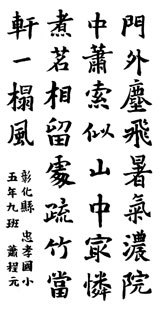 門外塵飛暑氣濃院
中蕭索似山中㝡憐
煮茗相留處疏竹當
軒一榻風
彰化縣 忠孝國小
五年九班 蕭程元